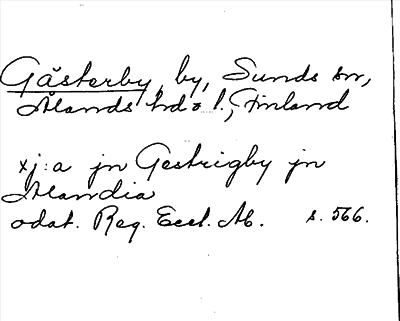 Gästerby, by, Sunds sn,
Ålands hd o l., Finland
xj: a jn Gestrigby jn
Alandia
odat. Reg. Eccl. Ab. s. 566.